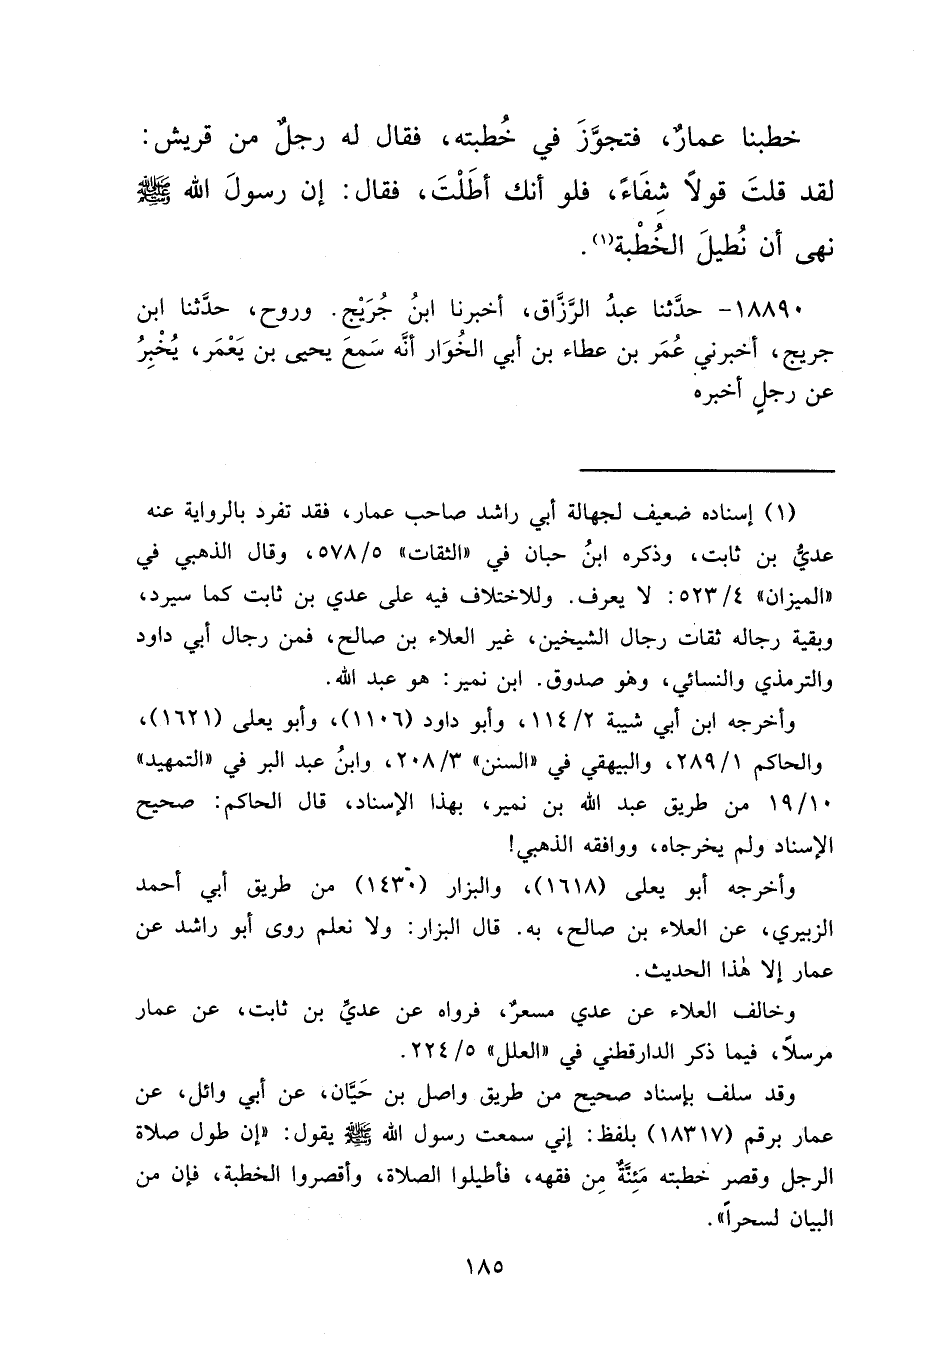 خطبنا عمارٌ، فتجوَّزَ في خُطبته، فقال له رجلٌ من قريش:
لقد قلتَ قولاً شِفَاءً، فلو أنك أطَلْتَ، فقال: إن رسولَ الله ﷺ
نهى أن نُطيلَ الخُطْبة(١).
١٨٨٩٠- حدَّثنا عبدُ الرَّزَّاق، أخبرنا ابنُ جُرَيْج. وروح، حدَّثنا ابن
جريج، أخبرني عُمَر بن عطاء بن أبي الخُوَار أنَّه سَمِعَ يحيى بن يَعْمَر، يُخْبِرُ
عن رجلٍ أخبره
(١) إسناده ضعيف لجهالة أبي راشد صاحب عمار، فقد تفرد بالرواية عنه
عديُّ بن ثابت، وذكره ابنُ حبان في «الثقات» ٥٧٨/٥، وقال الذهبي في
«الميزان» ٥٢٣/٤: لا يعرف. وللاختلاف فيه على عدي بن ثابت كما سيرد،
وبقية رجاله ثقات رجال الشيخين، غير العلاء بن صالح، فمن رجال أبي داود
والترمذي والنسائي، وهو صدوق. ابن نمير: هو عبد الله.
وأخرجه ابن أبي شيبة ١١٤/٢، وأبو داود (١١٠٦)، وأبو يعلى (١٦٢١)،
والحاكم ٢٨٩/١، والبيهقي في «السنن» ٢٠٨/٣، وابنُ عبد البر في «التمهيد»
١٩/١٠ من طريق عبد الله بن نمير، بهذا الإسناد، قال الحاكم: صحيح
الإسناد ولم يخرجاه، ووافقه الذهبي!
وأخرجه أبو يعلى (١٦١٨)، والبزار (١٤٣٠) من طريق أبي أحمد
الزبيري، عن العلاء بن صالح، به. قال البزار: ولا نعلم روى أبو راشد عن
عمار إلا هٰذا الحديث.
وخالف العلاء عن عدي مسعرٌ، فرواه عن عديِّ بن ثابت، عن عمار
مرسلاً، فيما ذكر الدارقطني في «العلل» ٢٢٤/٥.
وقد سلف بإسناد صحيح من طريق واصل بن حَيَّان، عن أبي وائل، عن
عمار برقم (١٨٣١٧) بلفظ: إني سمعت رسول الله ﷺ يقول: «إن طول صلاة
الرجل وقصر خطبته مَئِنَّةٌ مِن فقهه، فأطيلوا الصلاة، وأقصروا الخطبة، فإن من
البيان لسحراً».
١٨٥